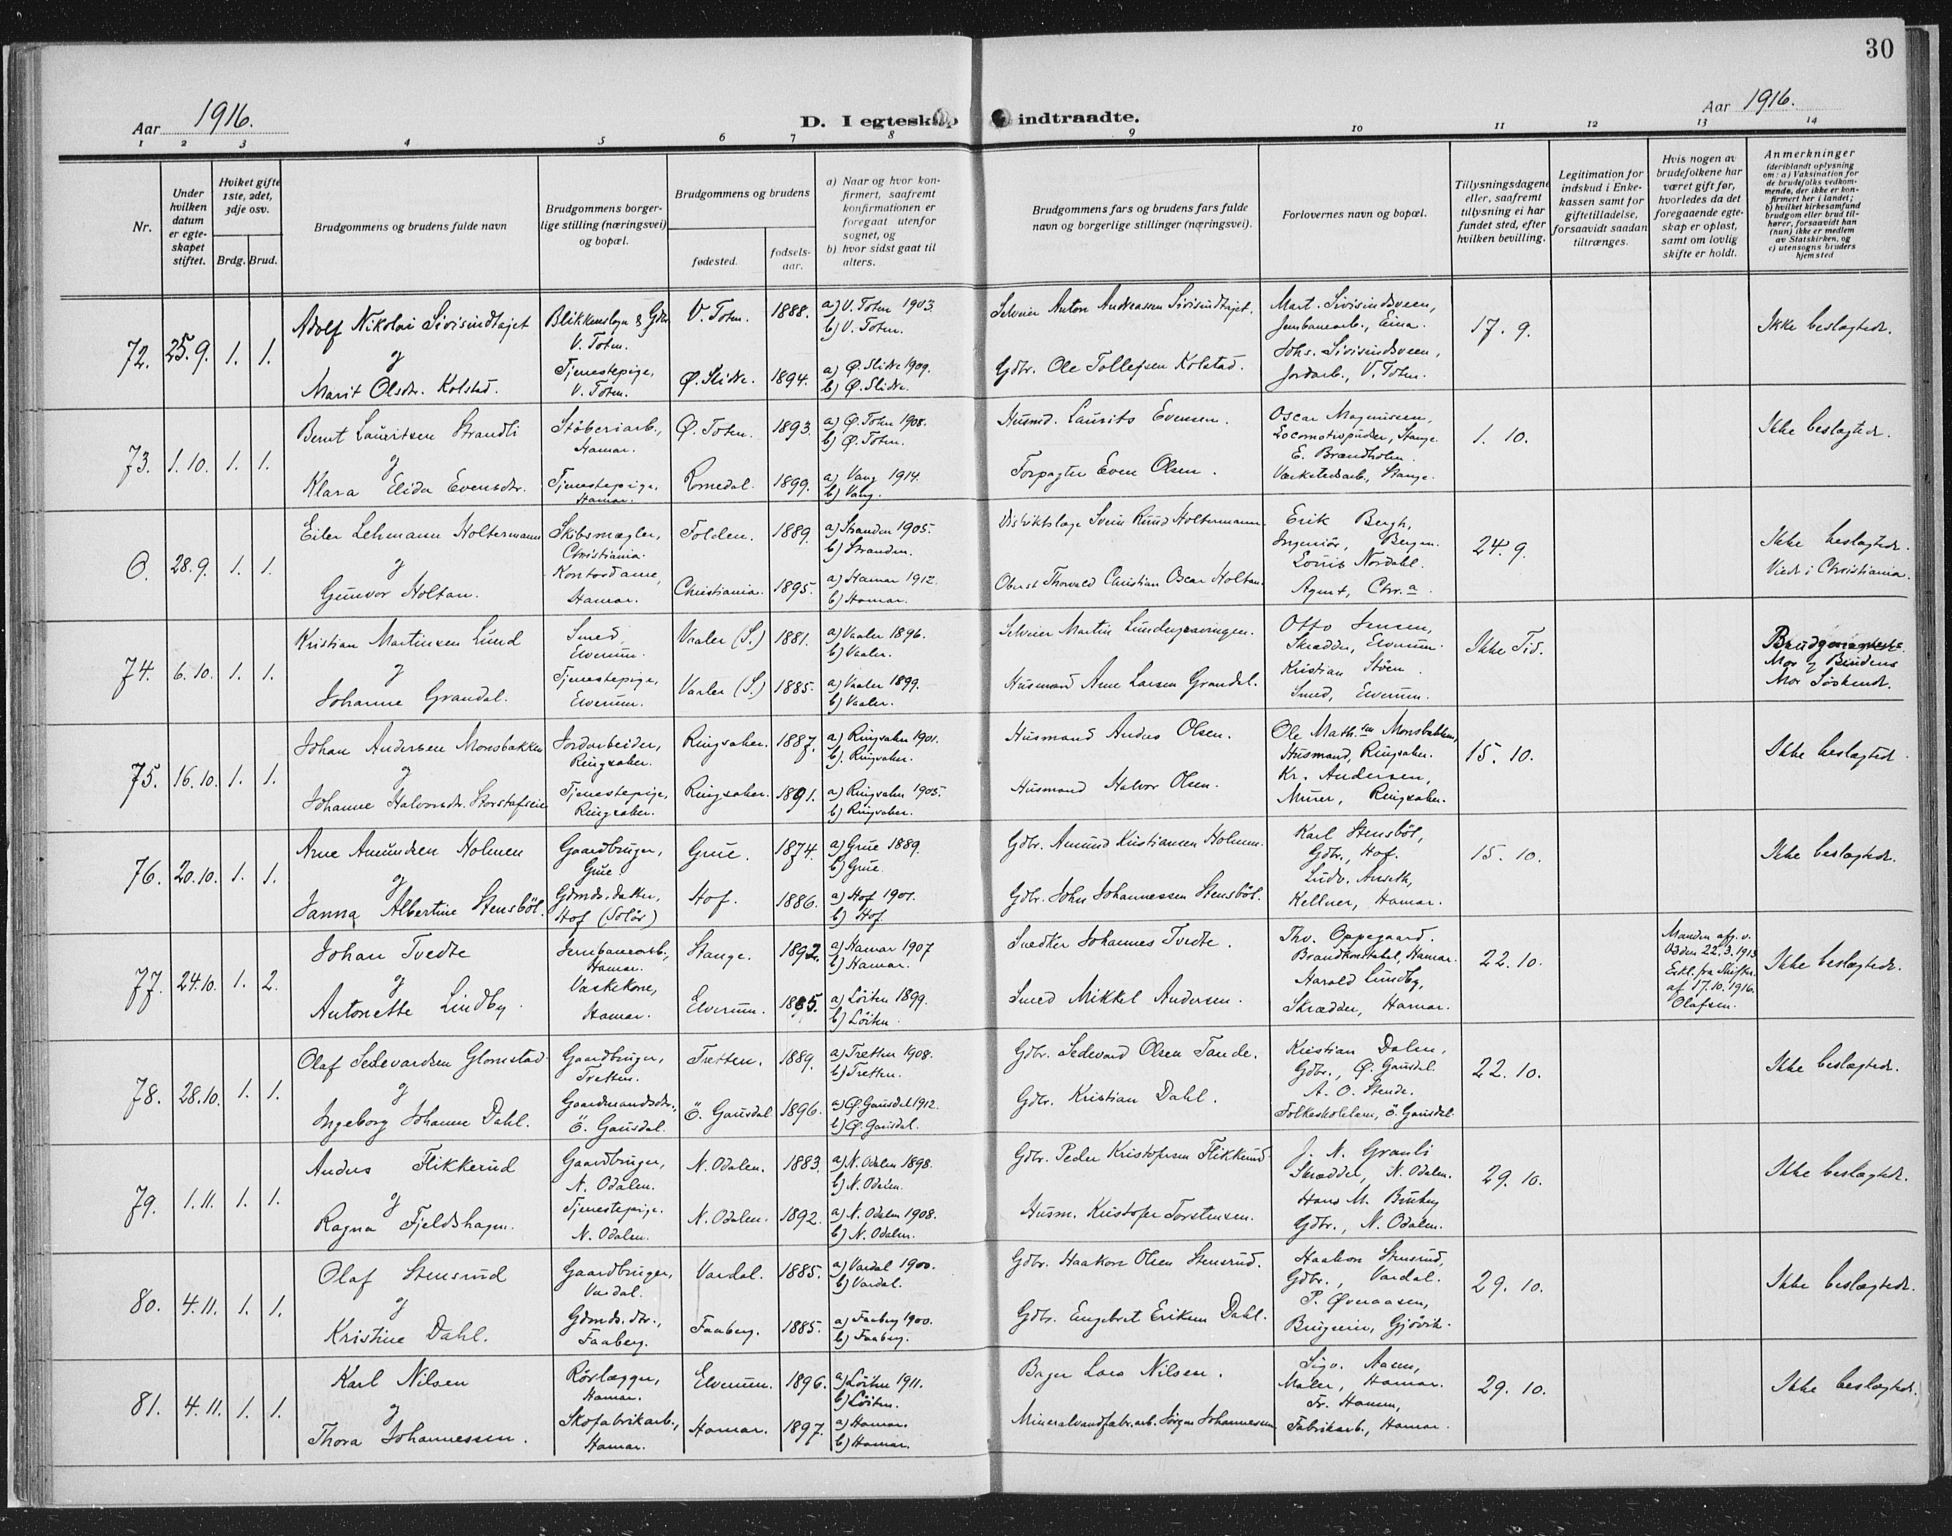 30
Aar 1916.
D. I egteskap indtraadte.
Aar 1916.
1 2 3 4 5 6 7 8 9 10 11 12 13 14
Nr.
Under hvilken datum er egteskapet stiftet.
Hvilket gifte 1ste, 2det, 3dje osv.
Brdg. Brud.
Brudgommens og brudens fulde navn
Brudgommens borgerlige stilling (næringsvei) og bopæl.
Brudgommens og brudens
fødested.
fødselsaar.
a) Naar og hvor konfirmert, saafremt konfirmationen er foregaat utenfor sognet, og
b) hvor sidst gaat til alters.
Brudgommens fars og brudens fars fulde navn og borgerlige stillinger (næringsvei).
Forlovernes navn og bopæl.
Tillysningsdagene eller, saafremt tillysning ei har fundet sted, efter hvilken bevilling.
Legitimation for indskud i Enkekassen samt for giftetilladelse, forsaavidt saadan tiltrænges.
Hvis nogen av brudefolkene har været gift før, hvorledes da det foregaaende egteskap er opløst, samt om lovlig skifte er holdt.
Anmerkninger
(deriblandt oplysning om: a) Vaksination for de brudefolks vedkommende, der ikke er konfirmert her i landet; b) hvilket kirkesamfund brudgom eller brud tilhører, forsaavidt han (hun) ikke er medlem av Statskirken, og c) utensogns bruders hjemsted
72. 25.9. 1. 1. Adolf Nikolai Sivisindhajet V. Toten. 1888. a) V. Toten 1903. b) V. Toten. Selveier Anton Andreassen Sivisindhajet. Mart. Sivisindsveen, Jernbanearb., Eina. 17. 9. Ikke beslegtede.
V. Toten.
g
Marit Olsdtr. Kolstad. Tjenestepige, V. Toten. Ø. Slidre. 1894. a) Ø. Slidre 1909. b) Ø. Slidre. Gdbr. Ole Tollefsen Kolstad. Johs. Sivisindsveen, Jordarb., V. Toten.
73. 1.10. 1. 1. Bernt Lauritsen Strandli Støberiarb., Hamar. Ø. Toten. 1893. a) Ø. Toten 1908. b) Ø. Toten. Husmd. Laurits Evensen. Oscar Magnussen, Stange. 1. 10. Ikke beslegtede.
g
Klara Elida Evensdtr. Tjenestepige, Hamar. Romedal. 1899. a) Vang 1914. b) Vang. Forpagter Even Olsen. E. Brændholen. Værkstedsarb., Stange.
0. 28.9. 1. 1. Eiler Lehmann Holtermann Skibsmægler, Christiania. Folden. 1889. a) Stranden 1905. b) Stranden. Distriktslæge Svein Ruud Holtermann. Erik Bergh, Ingeniør, Bergen. 24. 9. Ikke beslegtede. Viede i Christiania.
g
Gunvor Holtan. Kontordame, Hamar. Christiania. 1895. a) Hamar 1912. b) Hamar. Oberst Thorvald Christian Oscar Holtan. Louis Nordahl. Agent, Chr.a
74. 6.10. 1. 1. Kristian Martinsen Lund Smed, Elverum. Vaaler (S.) 1881. a) Vaaler 1896. b) Vaaler. Selveier Martin Lundergravingen. Otto Jensen, Skrædder, Elverum. Ikke Tid. Brudgommens Mor og Brudens Mor Søskende.
g
Johanne Grandal. Tjenestepige, Elverum. Vaaler (S.) 1885. a) Vaaler 1899. b) Vaaler. Husmand Arne Larsen Grandal. Kristian Støen Smed, Elverum.
75. 16.10. 1. 1. Johan Andersen Monsbakken Jordarbeider, Ringsaker. Ringsaker. 1887. a) Ringsaker 1901. b) Ringsaker. Husmand Anders Olsen. Ole Math.sen Monsbakken, Husmand, Ringsaker. 15. 10. Ikke beslegtede
g
Johanne Halvorsdtr. Storstafseie Tjenestepige, Ringsaker. Ringsaker. 1891. a) Ringsaker 1905. b) Ringsaker. Husmand Halvor Olsen. Kr. Andersen, Murer, Ringsaker.
76. 20.10. 1. 1. Arne Amundsen Holmen Gaardbruger, Grue Grue. 1874. a) Grue 1889. b) Grue. Gdbr. Amund Kristiansen Holmen. Karl Stensbøl, Gdbr., Hof. 15. 10. Ikke beslegtede.
g
Janna Albertine Stensböl. Gdmds. datter, Hof (Solør) Hof. 1886. a) Hof 1901. b) Hof. Gdbr. John Johannessen Stensböl. Ludv. Anseth, Kellner, Hamar.
77. 24.10. 1. 2. Johan Tvedte Jernbanearb., Hamar. Stange. 1892. a) Hamar 1907 b) Hamar. Snedker Johannes Tvedte. Thv. Oppegaard. Brandkonstabel, Hamar. 22. 10. Manden afg. v. Døden 22.3.1913 Erkl. fra Skifter. af 17.10.1916. Olafsen. Ikke beslegtede.
g
Antonette Lindby Vaskekone, Hamar. Elverum. 1885. a) Løiten 1899. b) Løiten. Smed Mikkel Andersen. Harald Lundby, Skrædder, Hamar.
78. 28.10. 1. 1. Olaf Sedevardsen Glomstad Gaardbruger, Tretten. Tretten. 1889. a) Tretten 1908. b) Tretten. Gdbr. Sedevard Olsen Tande. Kristian Dalen, Gdbr., Ø. Gausdal. 22. 10. Ikke beslegtede.
g
Ingeborg Johanne Dahl. Gaardmandsdtr., Ö. Gausdal. Ö. Gausdal 1896. a) Ø. Gausdal 1912. b) Ø. Gausdal. Gdbr. Kristian Dahl. A. O. Stende. Folkeskolelærer, Ö. Gausdal
79. 1.11. 1. 1. Anders Flikkerud Gaardbruger, N. Odalen. N. Odalen. 1883. a) N. Odalen 1898. b) N. Odalen. Gdbr. Peder Kristofersen Flikkerud. J. N. Granli Skrædder, N. Odalen. 29. 10. Ikke beslegtede.
g
Ragna Fjeldshagen. Tjenestepige. N. Odalen. N. Odalen. 1892. a) N. Odalen 1908. b) N. Odalen. Husm. Kristofer Torstensen. Hans M. Bruberg Gdbr., N. Odalen.
80. 4.11. 1. 1. Olaf Stensrud Gaardbruger, Vardal. Vardal. 1885. a) Vardal 1900. b) Vardal. Gdbr. Haakon Olsen Stensrud. Haakon Stensrud, Gdbr., Vardal. 29. 10. Ikke beslegtede.
g
Kristine Dahl. Gdmds. dtr., Faaberg. Faaberg. 1885. a) Faaberg 1900. b) Faaberg. Gdbr. Engebret Eriksen Dahl. P. Øveraasen, Gjøvik.
81. 4.11. 1. 1. Karl Nilsen Rørlægger, Hamar. Elverum. 1896. a) Løiten 1911. b) Løiten. Bager Lars Nilsen. Sigv. Aasen, Maler, Hamar. 29. 10. Ikke beslegtede.
g
Thora Johannessen. Skofabrikarb., Hamar. Hamar. 1897. a) Hamar. b) Hamar. Mineralvandfabr.arb. Jörgen Johannessen Fr. Hansen, Fabrikarb., Hamar.